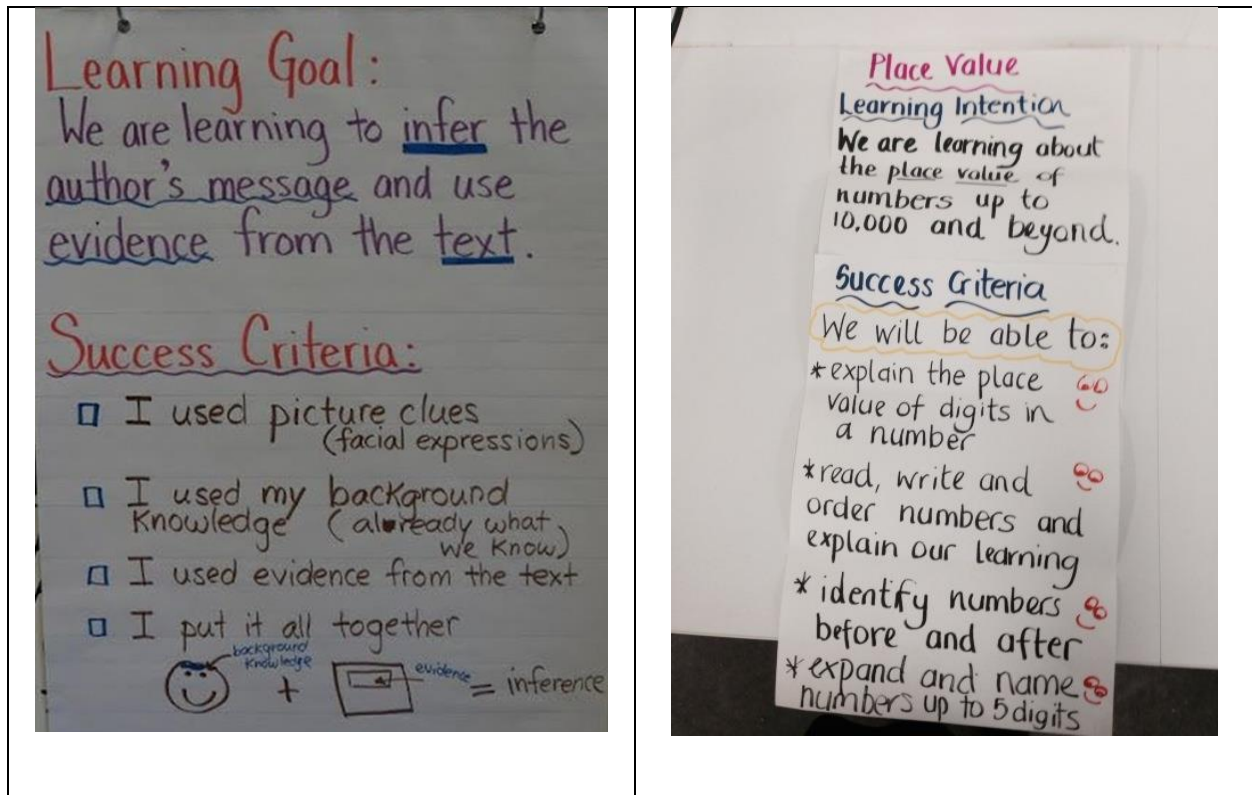 Learning Goal:
We are learning to infer the
author's message and use
evidence from the text.
Success Criteria:
I used picture clues
(facial expressions)
I used my background
Knowledge (already what
we know)
I used evidence from the text
I put it all together
background
Knowledge
+
evidence
= inference
Place Value
Learning Intention
We are learning about
the place value of
numbers up to
10,000 and beyond.
Success Criteria
We will be able to:
*explain the place
value of digits in
a number
*read, write and
order numbers and
explain our learning
*identify numbers
before and after
*expand and name
numbers up to 5 digits